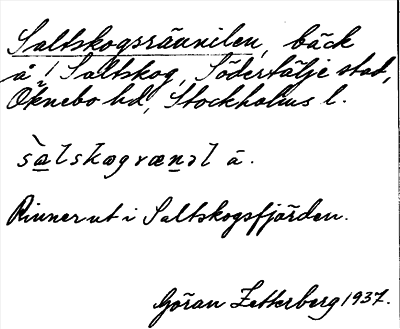 Saltskogsrännilen, bäck
å / Saltskog, Södertälje stad,
Öknebo hd, Stockholms l.
sàlskogrænəl ā.
Rinner ut i Saltskogsfjärden.
Göran Zetterberg 1937.